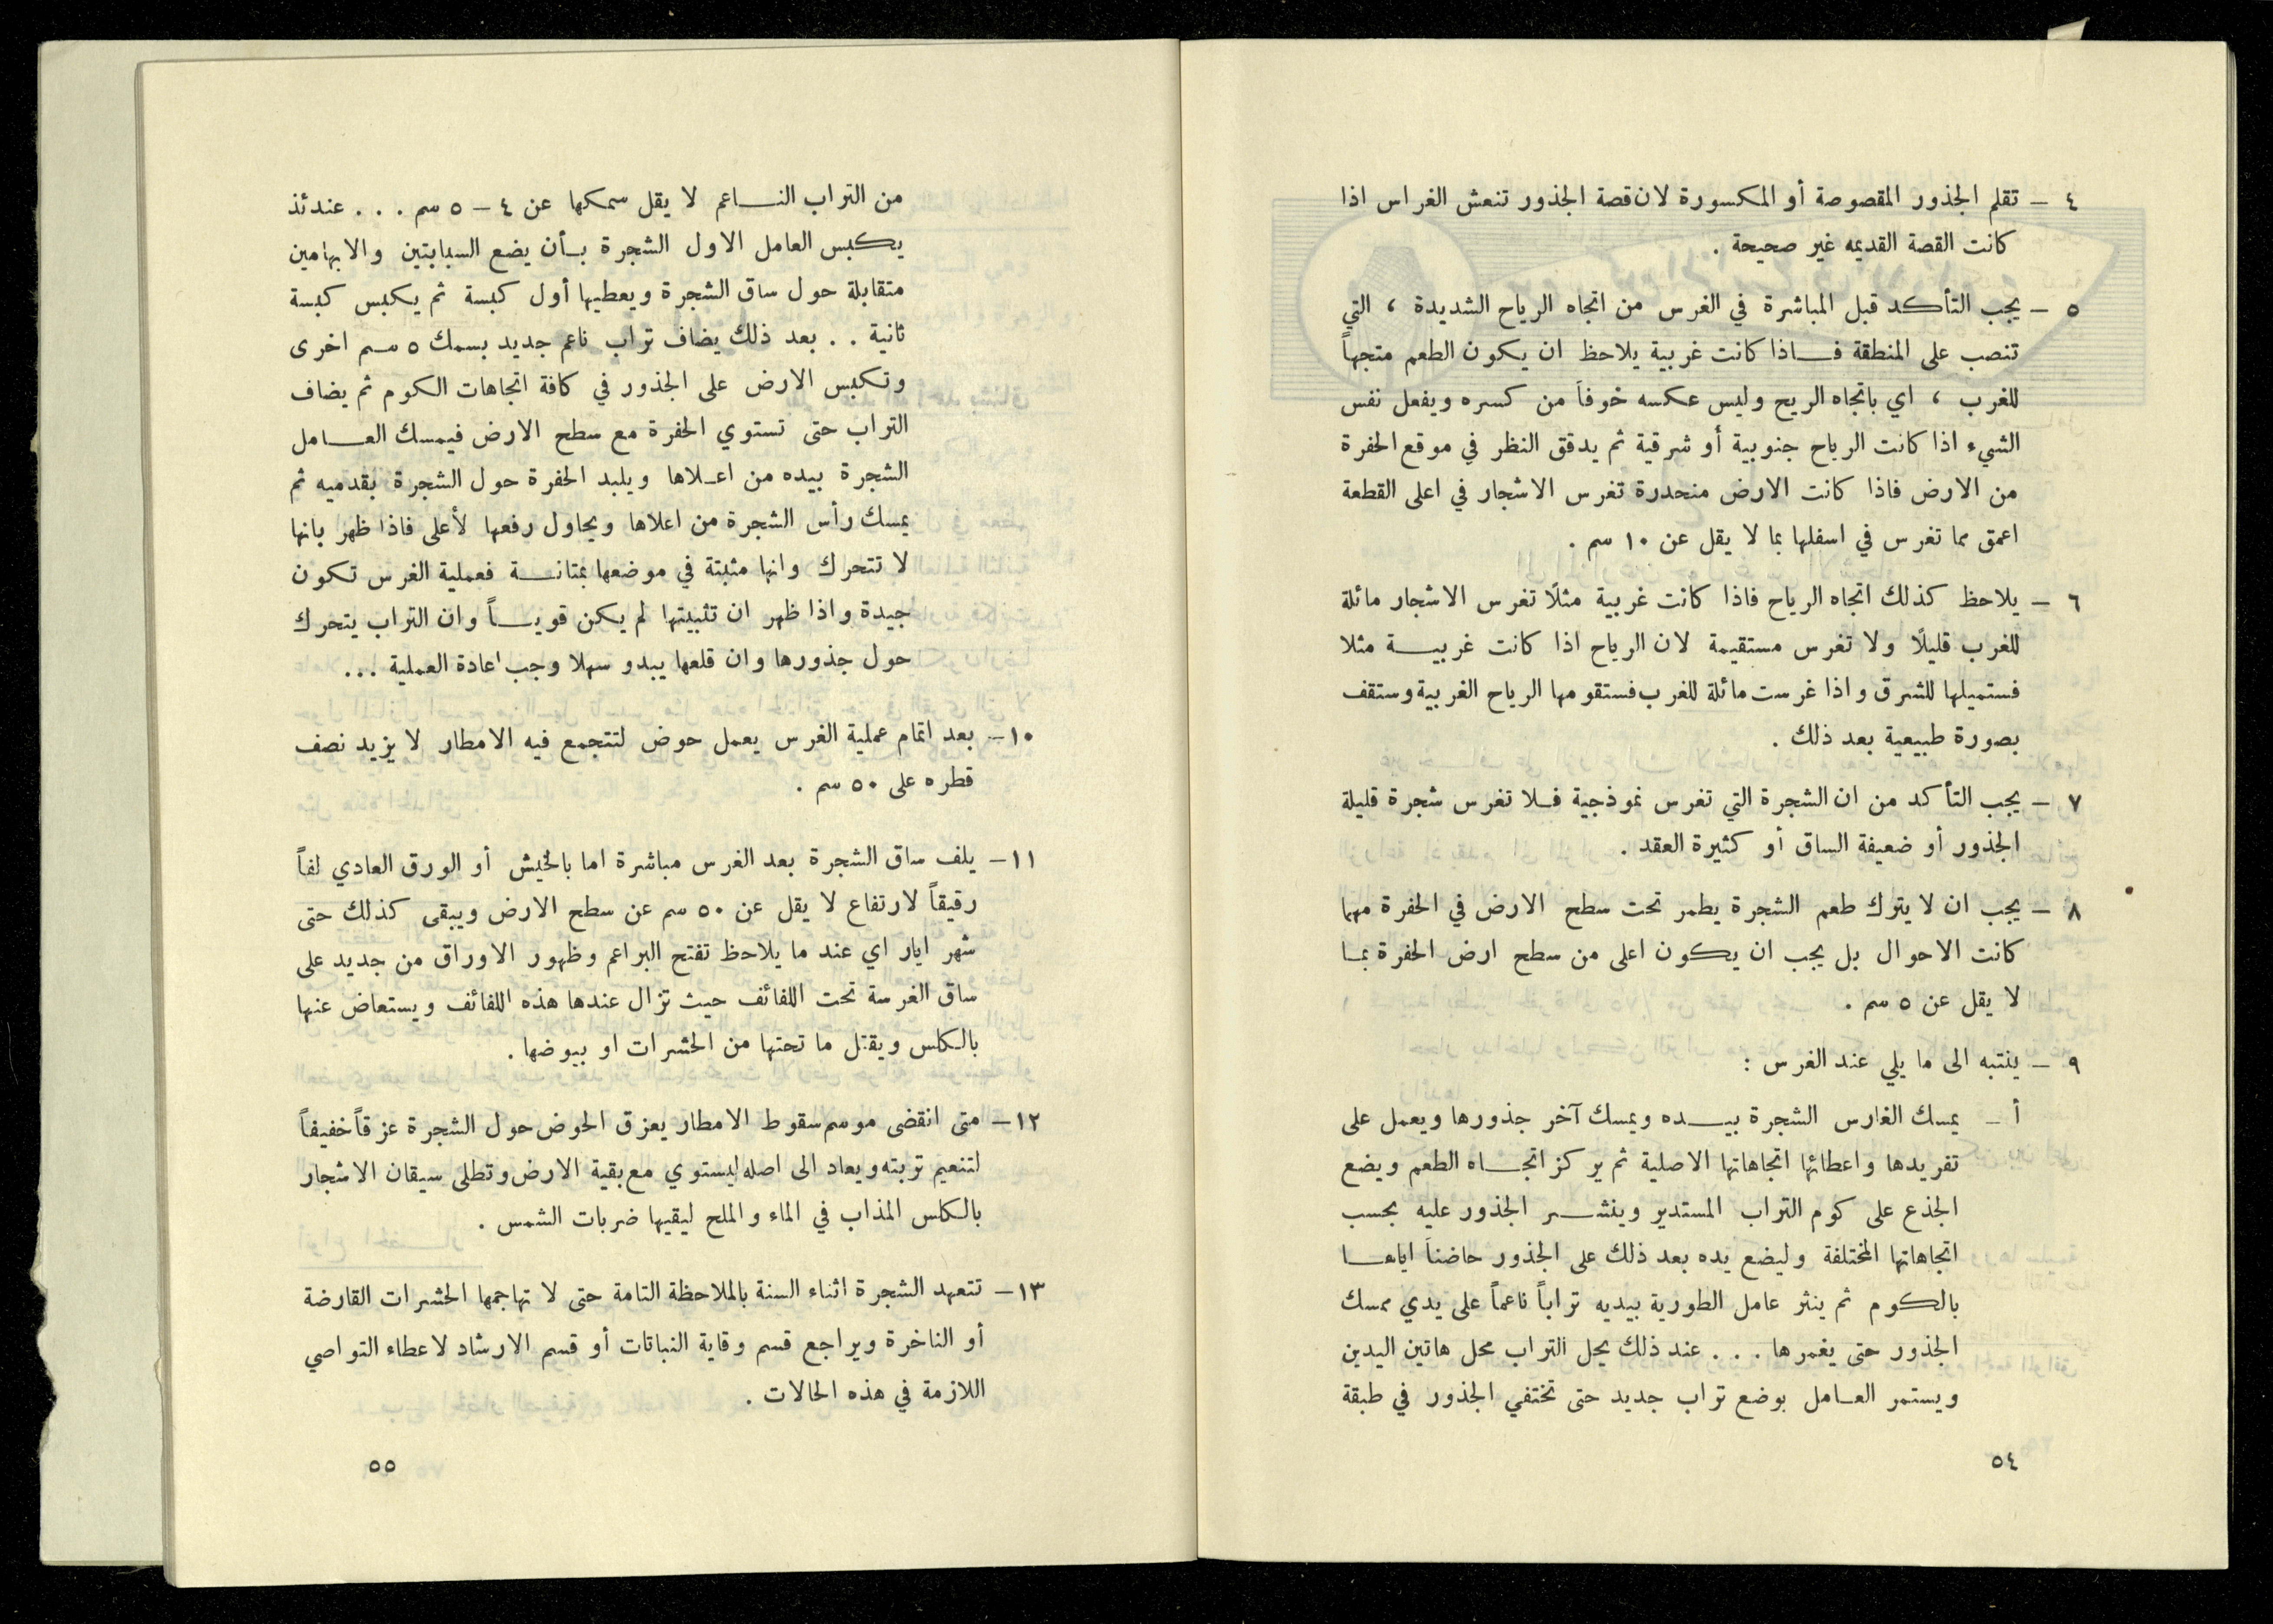 ٤ – تقلم الجذور المقصوصة أو المكسورة لان قصة الجذور تنعش الغراس اذا
كانت القصة القديمه غير صحيحة .
٥ – يجب التأكد قبل المباشرة في الغرس من اتجاه الرياح الشديدة ، التي
تنصب على المنطقة فاذا كانت غربية يلاحظ ان يكون الطعم متجهاً
للغرب ، اي باتجاه الريح وليس عكسه خوفاً من كسره ويفعل نفس
الشيء اذا كانت الرياح جنوبية أو شرقية ثم يدقق النظر في موقع الحفرة
من الارض فاذا كانت الارض منحدرة تغرس الاشجار في اعلى القطعة
اعمق مما تغرس في اسفلها بما لا يقل عن ١٠ سم .
٦ – يلاحظ كذلك اتجاه الرياح فاذا كانت غربية مثلاً تغرس الاشجار مائلة
للغرب قليلاً ولا تغرس مستقيمة لان الرياح اذا كانت غربية مثلا
فستميلها للشرق واذا غرست مائلة للغرب فستقومها الرياح الغربية وستقف
بصورة طبيعية بعد ذلك .
٧ – يجب التأكد من ان الشجرة التي تغرس نموذجية فلا تغرس شجرة قليلة
الجذور أو ضعيفة الساق أو كثيرة العقد .
٨ – يجب ان لا يترك طعم الشجرة يطمر تحت سطح الارض في الحفرة مهما
كانت الاحوال بل يجب ان يكون اعلى من سطح ارض الحفرة بما
لا يقل عن ٥ سم .
٩ – ينتبه الى ما يلي عند الغرس :
أ – يمسك الغارس الشجرة بيده ويمسك آخر جذورها ويعمل على
تفريدها واعطائها اتجاهاتها الاصلية ثم يركز اتجاه الطعم ويضع
الجذع على كوم التراب المستدير وينشر الجذور عليه بحسب
اتجاهاتها المختلفة وليضع يده بعد ذلك على الجذور حاضناً اياها
بالكوم ثم ينثر عامل الطورية بيديه تراباً ناعماً على يدي ممسك
الجذور حتى يغمرها . . . عند ذلك يحل التراب محل هاتين اليدين
ويستمر العامل بوضع تراب جديد حتى تختفي الجذور في طبقة
٥٤
من التراب الناعم لا يقل سمكها عن ٤ – ٥ سم . . . عندئذ
يكبس العامل الاول الشجرة بأن يضع السبابتين والابهامين
متقابلة حول ساق الشجرة ويعطيها أول كبسة ثم يكبس كبسة
ثانية . . بعد ذلك يضاف تراب ناعم جديد بسمك ٥ سم اخرى
وتكبس الارض على الجذور في كافة اتجاهات الكوم ثم يضاف
التراب حتى تستوي الحفرة مع سطح الارض فيمسك العامل
الشجرة بيده من اعلاها ويلبد الحفرة حول الشجرة بقدميه ثم
يمسك رأس الشجرة من اعلاها ويحاول رفعها لأعلى فاذا ظهر بانها
لا تتحرك وانها مثبتة في موضعها بمتانة فعملية الغرس تكون
جيدة واذا ظهر ان تثبيتها لم يكن قوياً وان التراب يتحرك
حول جذورها وان قلعها يبدو سهلا وجب اعادة العملية ...
١٠ – بعد اتمام عملية الغرس يعمل حوض لتتجمع فيه الامطار لا يزيد نصف
قطره على ٥٠ سم .
١١ – يلف ساق الشجرة بعد الغرس مباشرة اما بالخيش أو الورق العادي لفاً
رقيقاً لارتفاع لا يقل عن ٥٠ سم عن سطح الارض ويبقى كذلك حتى
شهر ايار اي عند ما يلاحظ تفتح البراعم وظهور الاوراق من جديد على
ساق الغرسة تحت اللفائف حيث تزال عندها هذه اللفائف ويستعاض عنها
بالكلس ويقتل ما تحتها من الحشرات او بيوضها .
١٢ – متى انقضى موسم سقوط الامطار يعزق الحوض حول الشجرة عزقاً خفيفاً
لتنعيم تربته ويعاد الى اصله ليستوي مع بقية الارض وتطلى سيقان الاشجار
بالكلس المذاب في الماء والملح ليقيها ضربات الشمس .
١٣ – تتعهد الشجرة اثناء السنة بالملاحظة التامة حتى لا تهاجمها الحشرات القارضة
أو الناخرة ويراجع قسم وقاية النباتات أو قسم الارشاد لاعطاء التواصي
اللازمة في هذه الحالات .
٥٥